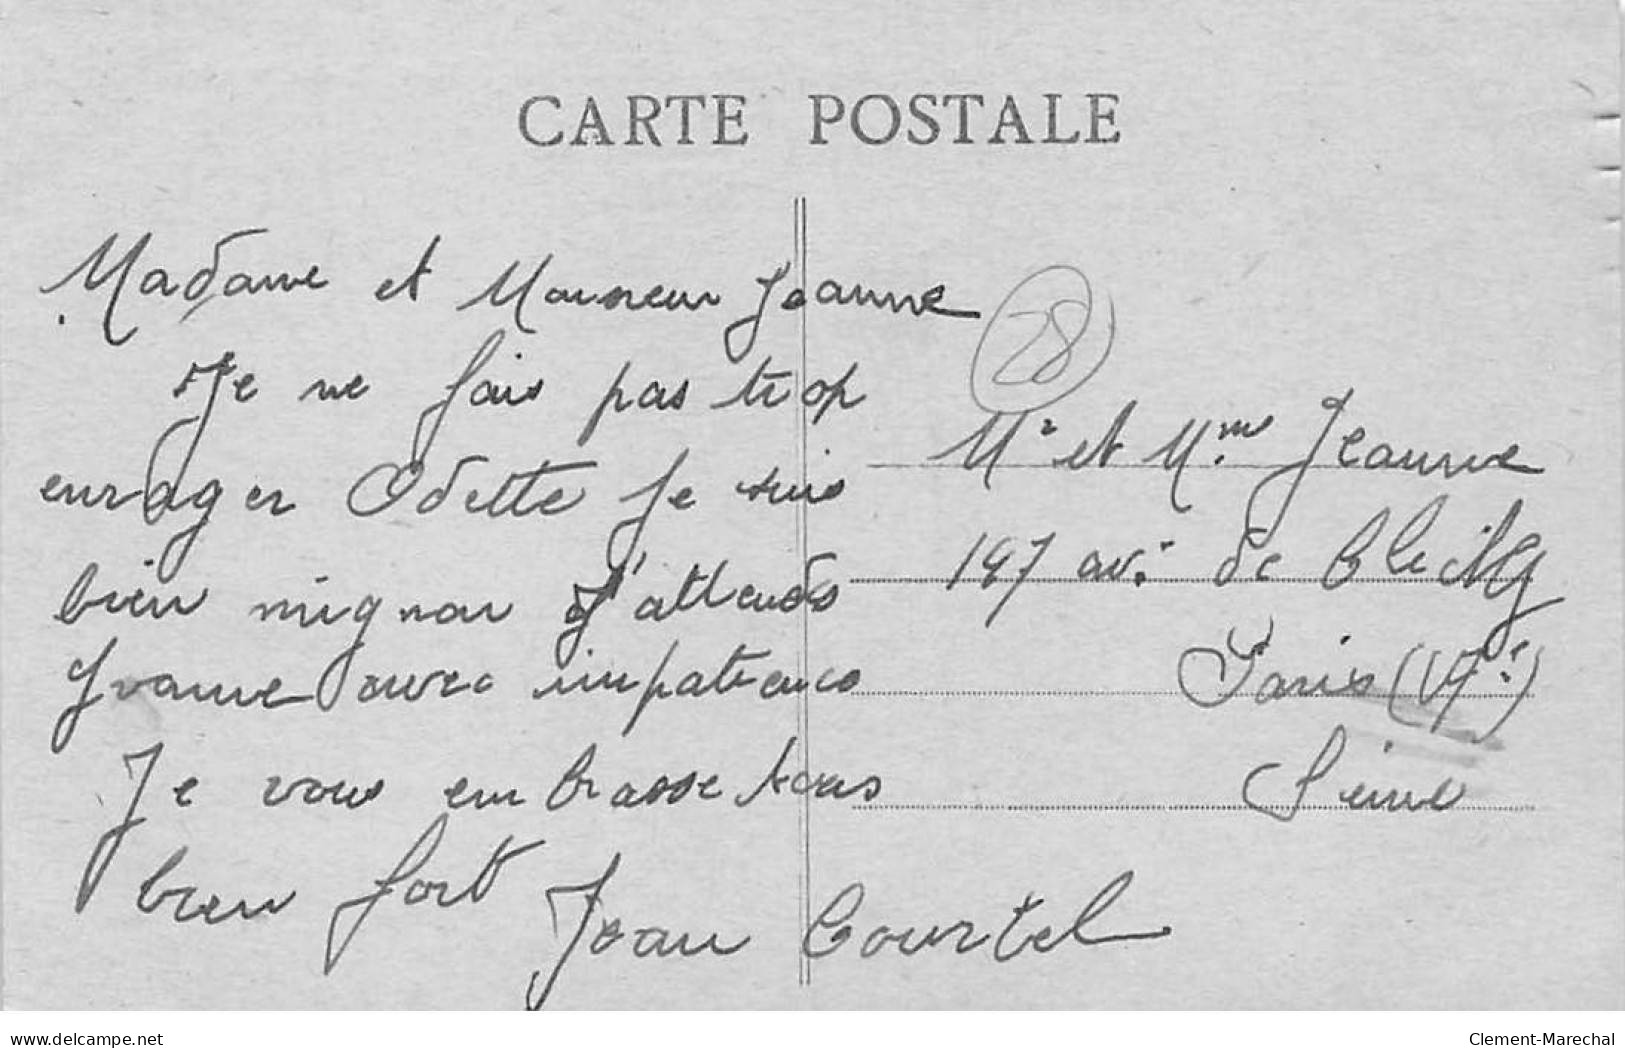 CARTE POSTALE
Madame et Monsieur Jeanne
Je ne fais pas trop
enrager Odette Je suis
bien mignon J'attends
Yvonne avec impatience
Je vous embrasse tous
bien fort Jean Courtel
28
Mr et Mme Jeanne
197 av: de
Paris
Seine
delcampe.net
Clement-Marechal